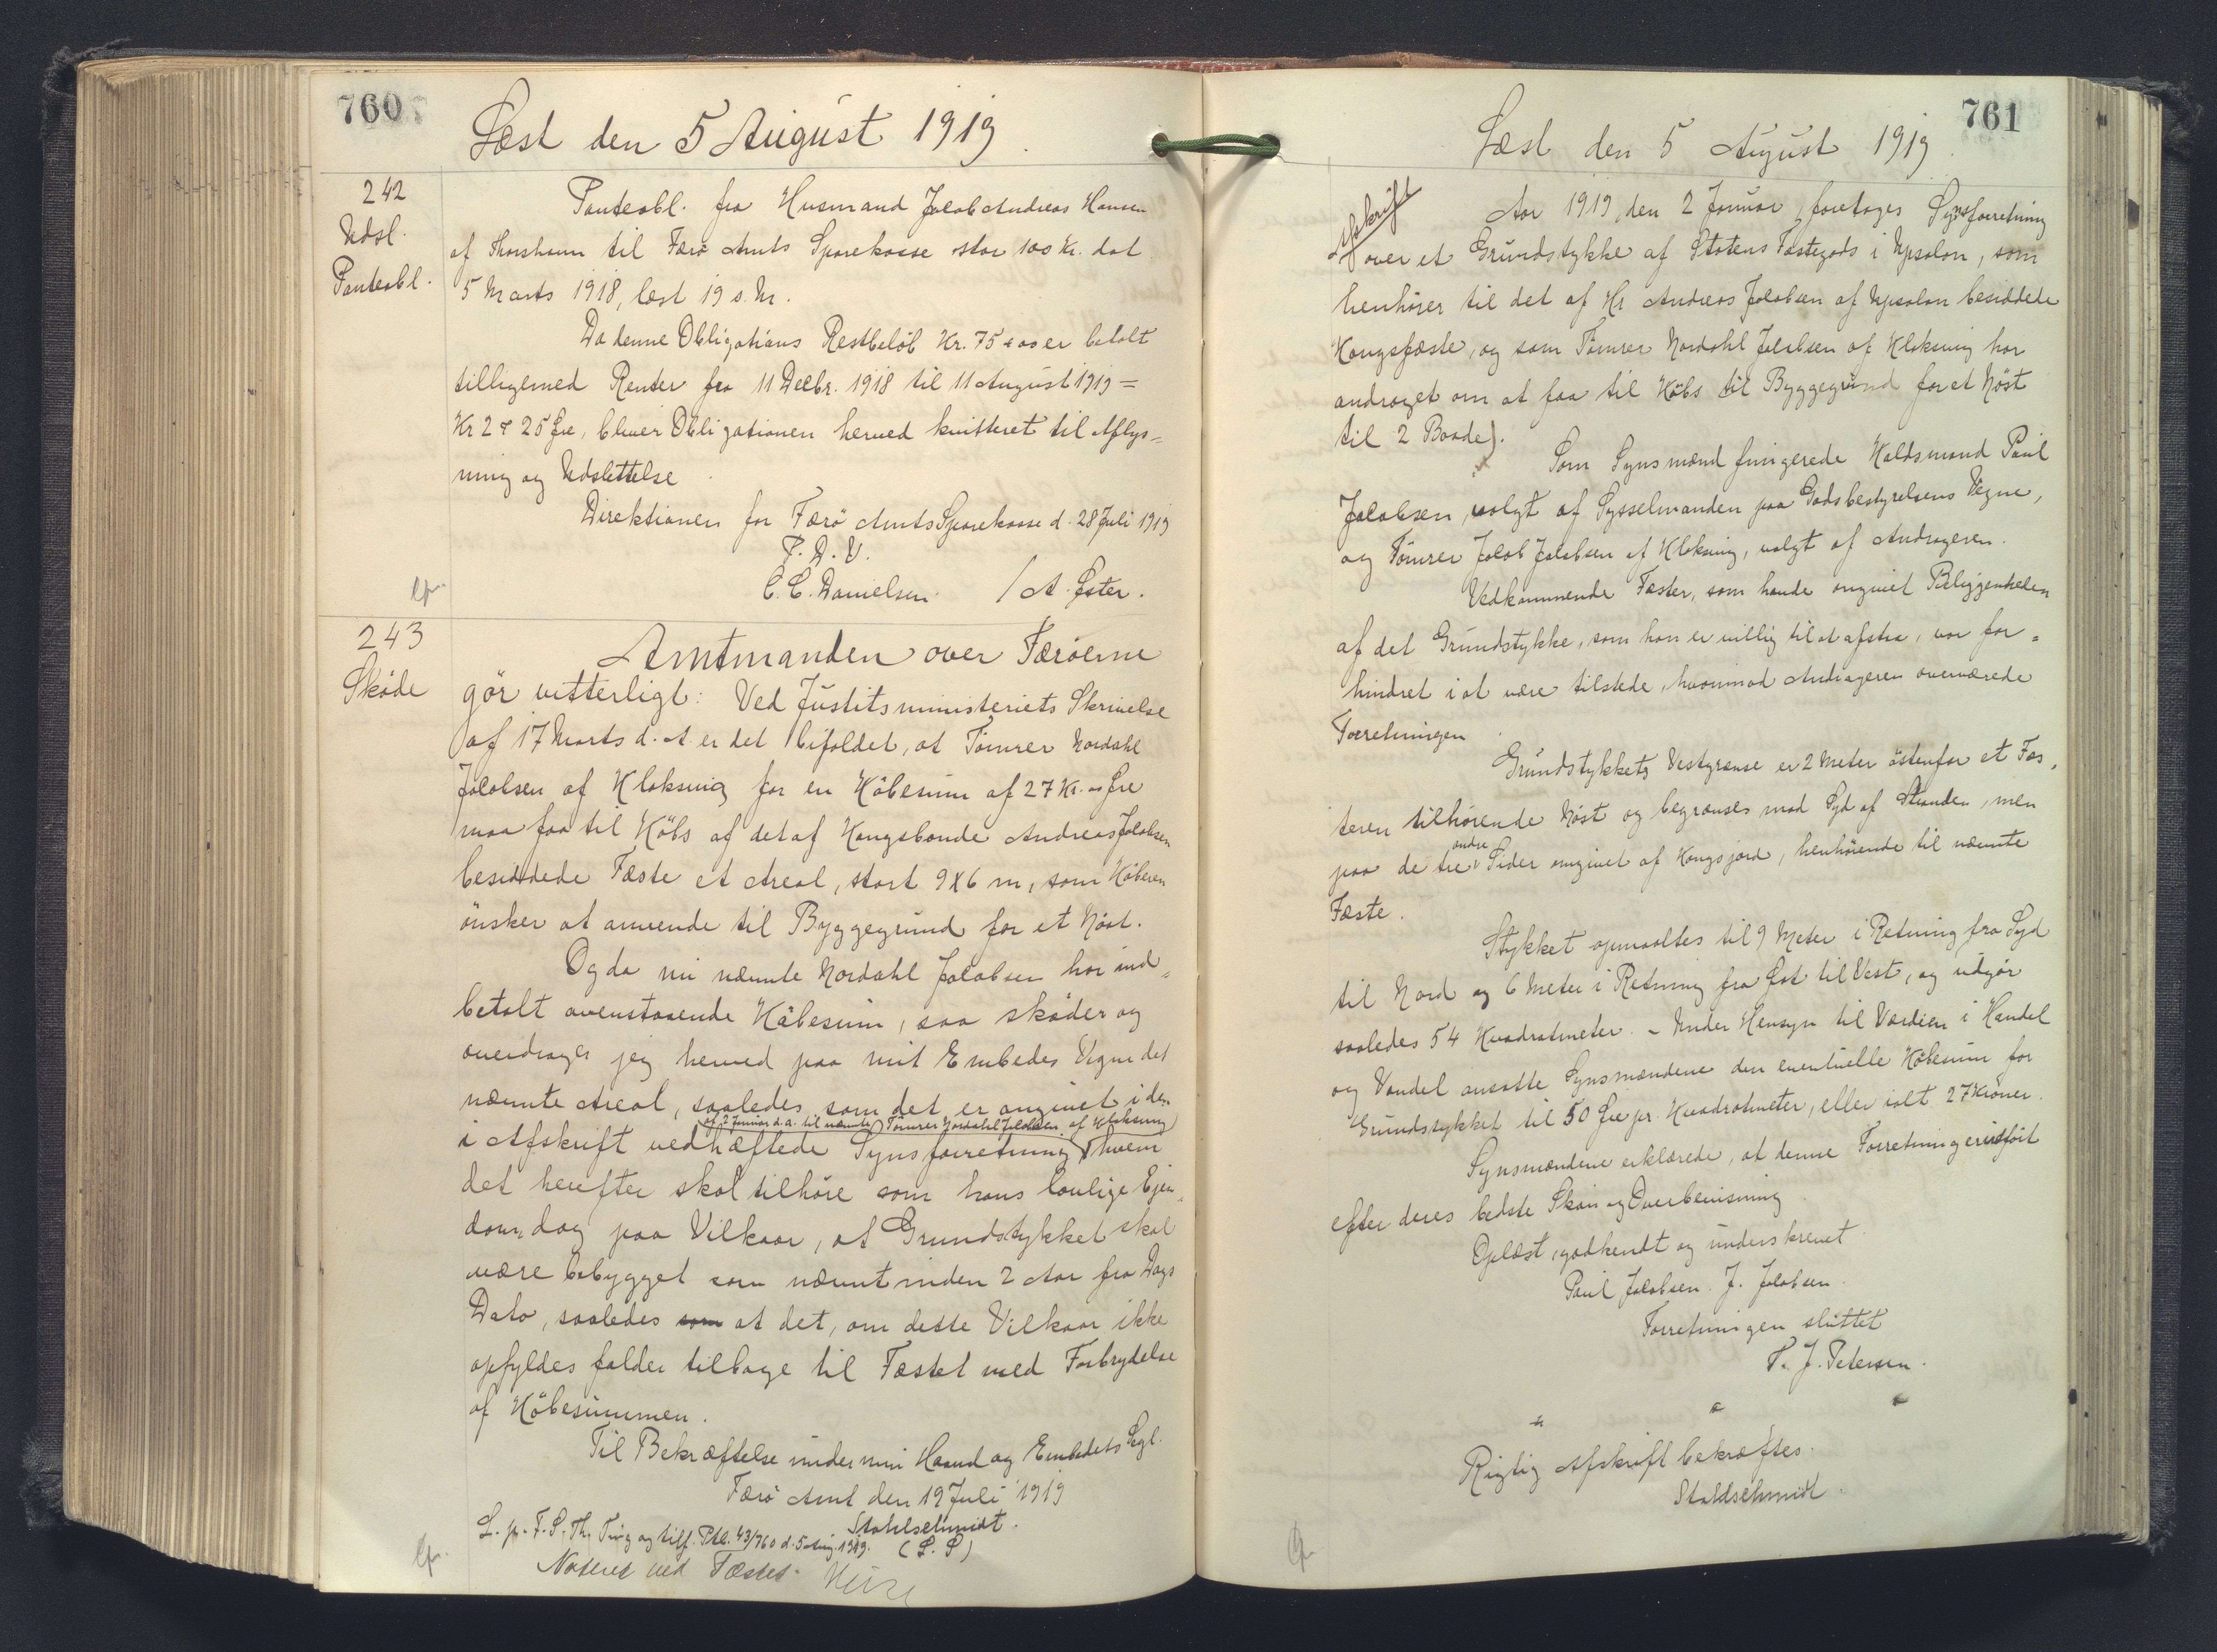 760
Læst den 5 August 1919.
242
Udsl.
Panteobl.
Panteobl. fra Husmand Jacob Andreas Hansen
af Thorshavn til Færø Amts Sparekasse stor 100 Kr. dat
5 Marts 1918, læst 19 s. M.
Da denne Obligations Restbeløb Kr. 75 er betalt
tilligemed Renter fra 11 Decbr. 1918 til 11 August 1919 =
Kr 2 25 Øre, bliver Obligationen herved kvitteret til Aflys=
ning og Udslettelse.
Direktionen for Færø Amts Sparekasse d. 28 Juli 1919
P. D. V.
C. C. Danielsen. / A. Øster.
243
Skøde
Amtmanden over Færøerne
gör vitterligt: Ved Justitsministeriets Skrivelse
af 17 Marts d. A. er det bifaldet, at Tömrer Nordahl
Jacobsen af Klaksvig for en Köbesum af 27 Kr. " Øre
maa faa til Köbs af det af Kongsbonde Andreas Jacobsen
besiddede Fæste et Areal, stort 9X6 m, som Köberen
önsker at anvende til Byggegrund for et Nöst.
Og da nu nævnte Nordahl Jacobsen har ind=
betalt ovenstaaende Köbesum, saa sköder og
overdrager jeg herved paa mit Embedes Vegne det
nævnte Areal, saaledes som det er angivet i den
af 2 Januar d. A. til nævnte Tömrer Nordahl Jacobsen af Klaksvig
i Afskrift vedhæftede Synsforretning hvem
det herefter skal tilhöre som hans lovlige Ejen=
dom, dog paa Vilkaar, at Grundstykket skal
være bebygget som nævnt inden 2 Aar fra Dags
Dato, saaledes som at det, om dette Vilkaar ikke
opfyldes falder tilbage til Fæstet med Forbrydelse
af Köbesummen.
Til Bekræftelse under min Haand og Embedets Segl.
Færö Amt den 19 Juli 1919
Stahlschmidt.
(L. S)
L. p. F. S. Th. Ting og tilf. Ptb. 43/760 d. 5 Aug. 1919.
Noteret ved Fæstet.
761
Læst den 5 August 1919.
Afskrift
Aar 1919, den 2 Januar, foretoges Synsforretning
over et Grundstykke af Statens Fæstegods i Upsalon, som
henhörer til det af Hr Andreas Jacobsen af Upsalon besiddede
Kongsfæste, og som Tömrer Nordahl Jacobsen af Klaksvig har
andraget om at faa til Köbs til Byggegrund for et Nöst
til 2 Baade).
Som Synsmænd fungerede Haldsmand Paul
Jacobsen, valgt af Sysselmanden paa Godsbestyrelsens Vegne,
og Tömrer Jacob Jacobsen af Klaksvig, valgt af Andrageren.
Vedkommende Fæster, som havde angivet Beliggenheden
af det Grundstykke, som han er villig til at afstaa, var for=
hindret i at være tilstede, hvorimod Andrageren overværede
Forretningen.
Grundstykkets Vestgrænse er 2 Meter östenfor et Fæs=
teren tilhörende Nöst og begrænses mod Syd af Stranden, men
paa de tre andre Sider omgivet af Kongsjord, henhörende til nævnte
Fæste.
Stykket opmaaltes til 9 Meter i Retning fra Syd
til Nord og 6 Meter i Retning fra Øst til Vest, og udgör
saaledes 54 Kvadratmeter. - Under Hensyn til Værdien i Handel
og Vandel ansatte Synsmændene den eventuelle Köbesum for
Grundstykket til 50 Øre pr. Kvadratmeter, eller ialt 27 Kroner.
Synsmændene erklærede, at denne Forretning er udfört
efter deres bedste Skön og Overbevisning.
Oplæst, godkendt og underskrevet.
Paul Jacobsen. J. Jacobsen.
Forretningen sluttet
P. J. Petersen.
Rigtig Afskrift bekræftes.
Stahlschmidt.